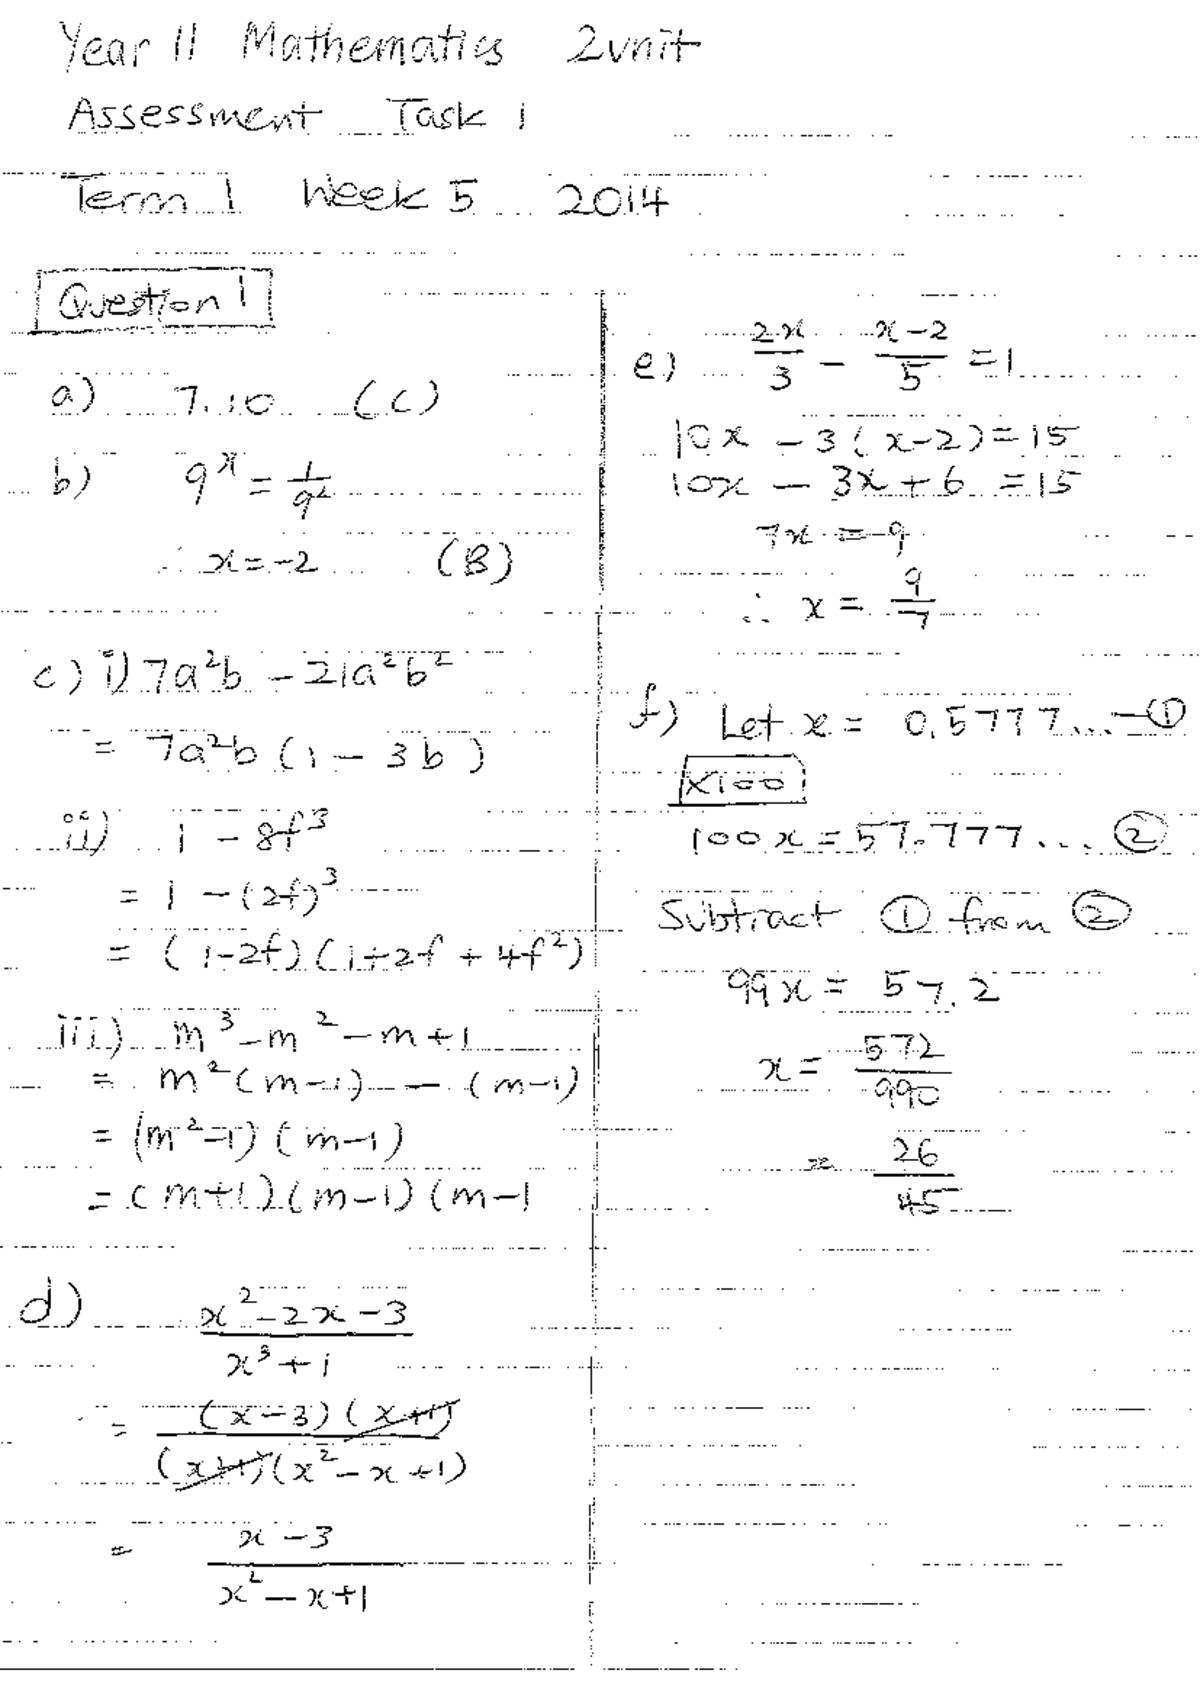 Year 11 Mathematics 2unit
Assessment Task 1
Term 1 Week 5 2014
Question 1
a) 7.10 (C)
b) 9^x = 1/9^2
∴ x = -2 (B)
c) i) 7a²b - 21a²b²
= 7a²b (1 - 3b)
ii) 1 - 8f³
= 1 - (2f)³
= (1-2f)(1+2f + 4f²)
iii) m³ - m² - m + 1
= m²(m-1) - (m-1)
= (m²-1)(m-1)
= (m+1)(m-1)(m-1
d) (x² - 2x - 3)/(x³ + 1)
= (x-3)(x+1)/(x+1)(x² - x + 1)
= (x - 3)/(x² - x + 1)
e) 2x/3 - (x-2)/5 = 1
10x - 3(x-2) = 15
10x - 3x + 6 = 15
7x = 9
∴ x = 9/7
f) Let x = 0.5777... — ①
×100
100x = 57.777... ②
Subtract ① from ②
99x = 57.2
x = 572/990
= 26/45